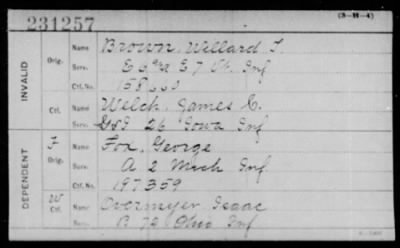 231257
(3-H-4)
INVALID
Orig. Name Brown, Willard J.
Serv. E 5 & E 7 Vt. Inf
Ctf. No. 158
Ctf. Name Welch, James C.
Serv. 26 Iowa Inf
DEPENDENT
Orig. Name Fox, George
Serv. A 2 Mich Inf
Ctf. No. 197359
W
Ctf. Name Overmeyer Isaac
Serv. B 72 Ohio Inf